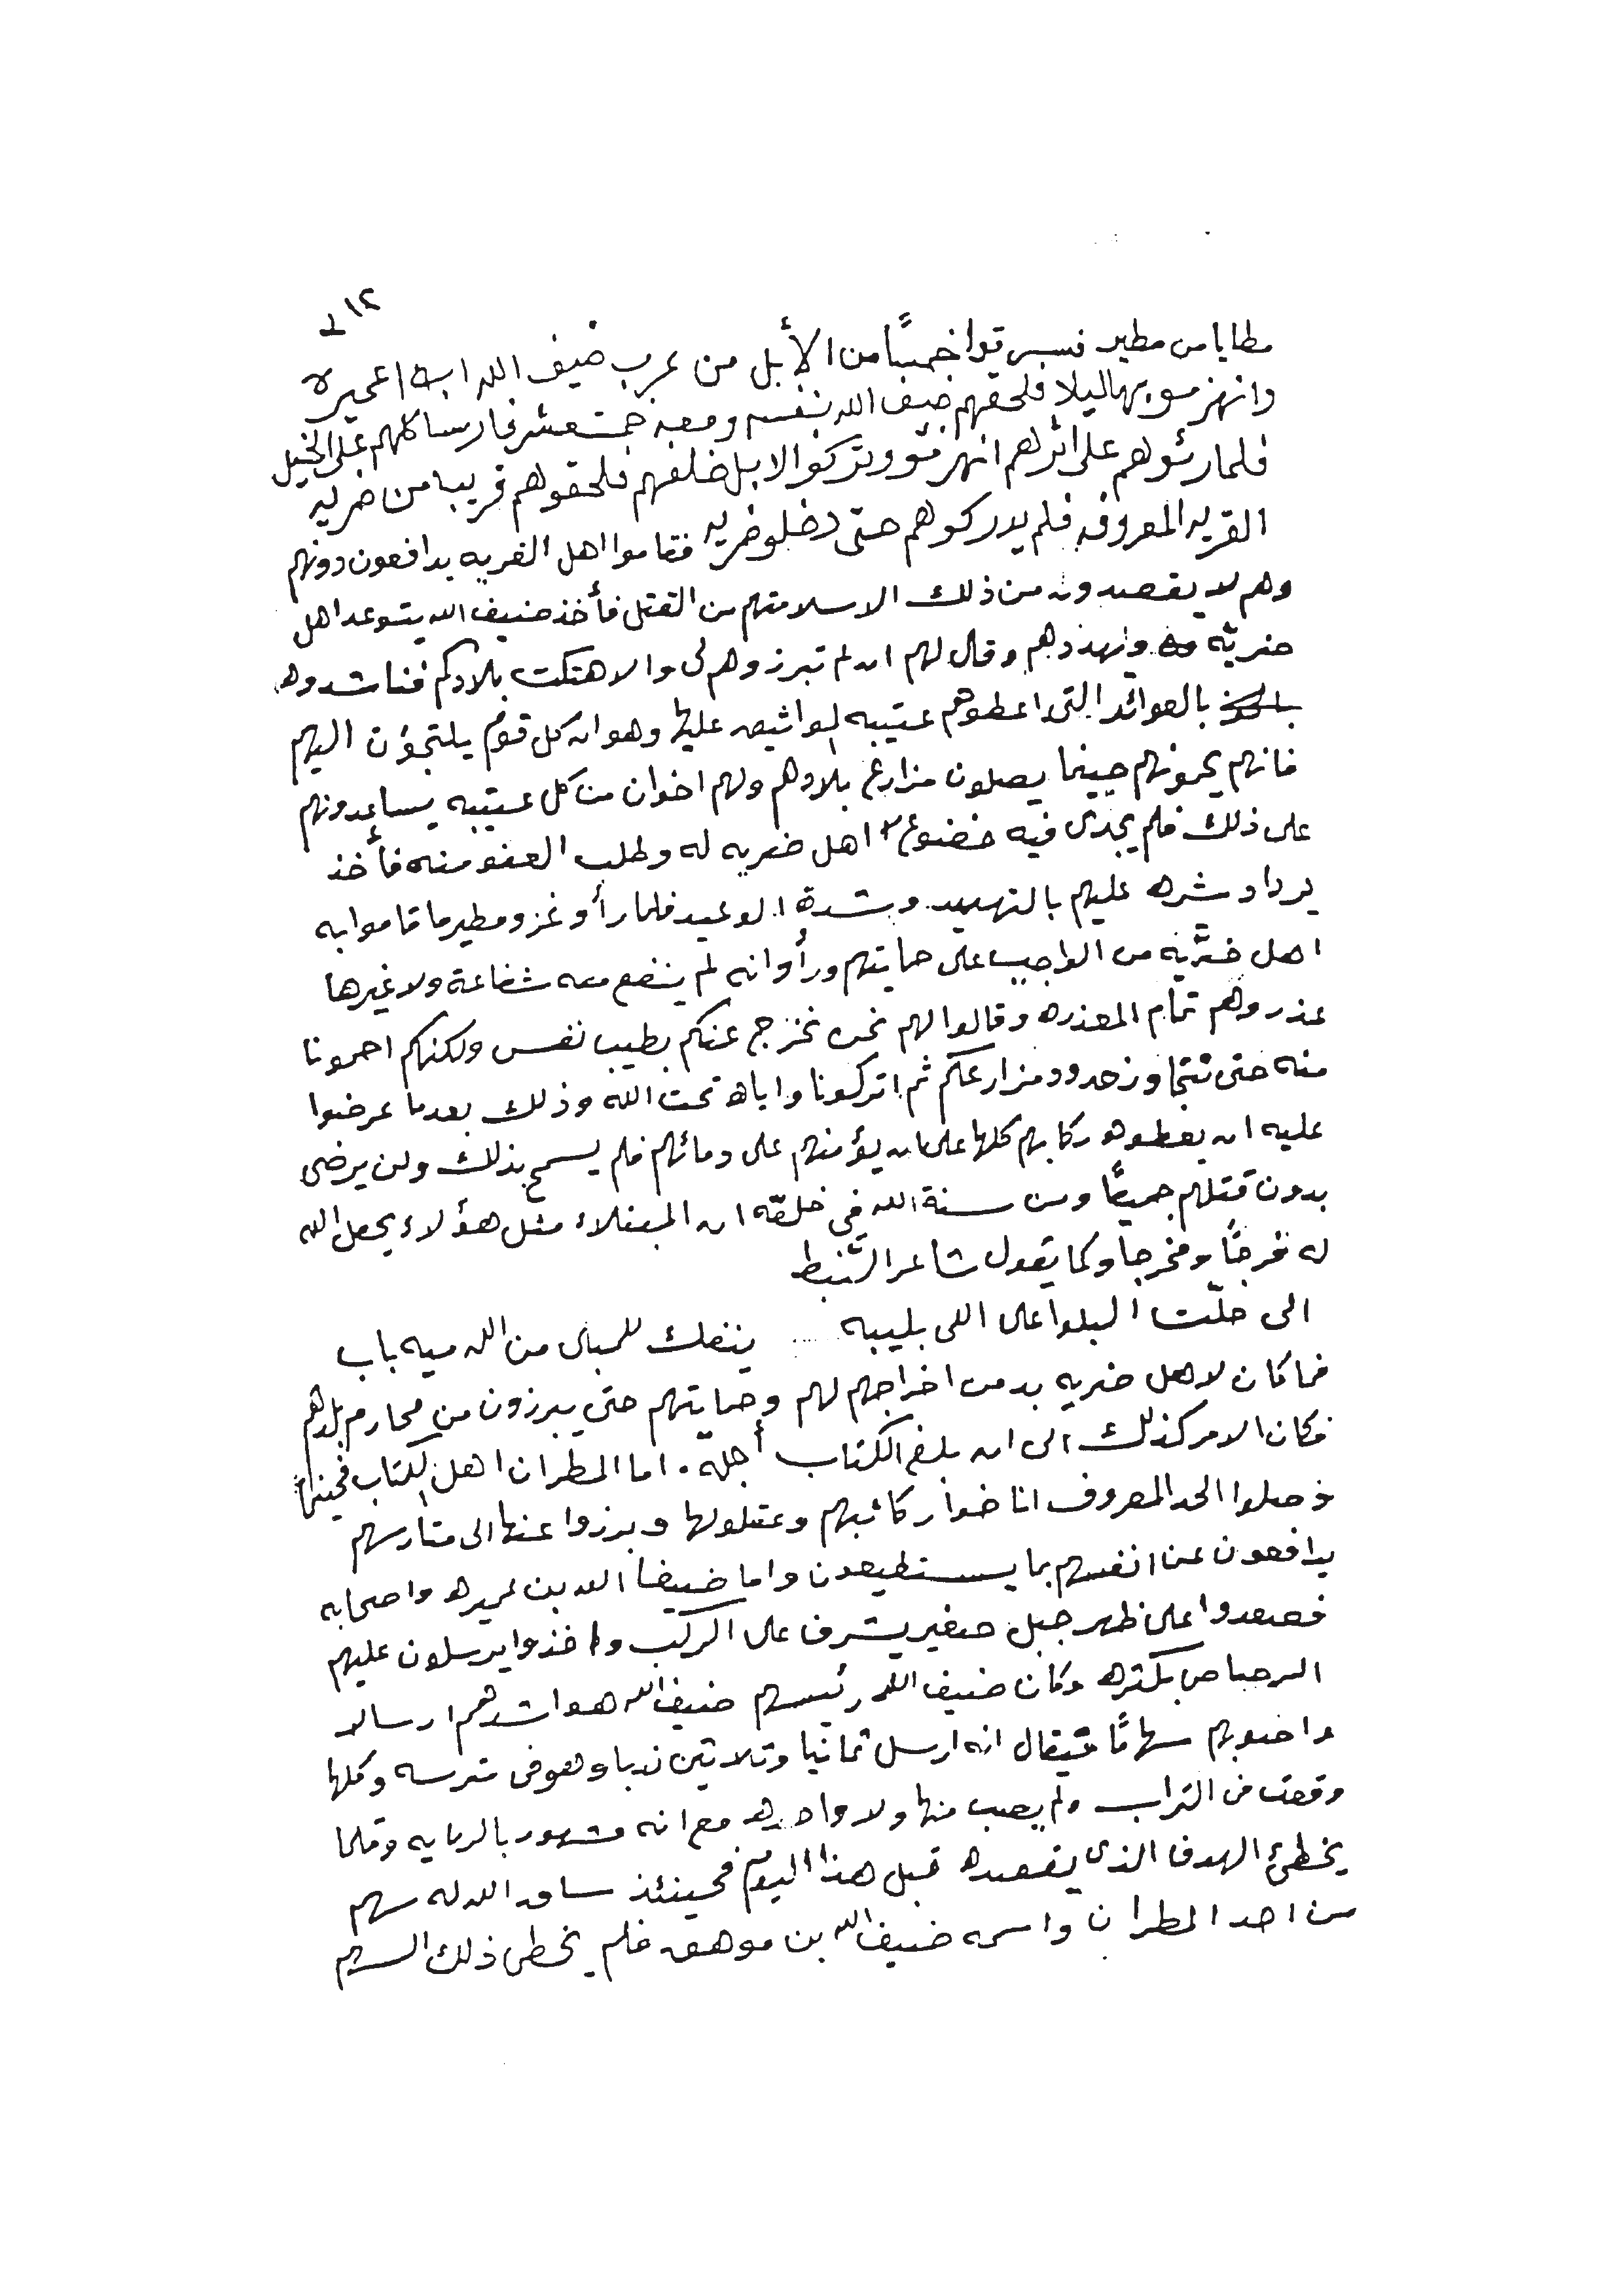 ٢١٢
مطايا من مطير فسرقوا خمسًا من الأبل من عرب ضيف الله ابن اعميره
وانهزموا بها ليلا فلحقهم ضيف الله بنفسه ومعه خمسة عشر فارسا كلهم على الخيل
فلما رئوهم على اثرهم انهزمو وتركوا الابل خلفهم فلحقوهم قريبا من ضريه
القريه المعروفه فلم يدركوهم حتى دخلو ضريه فقاموا اهل القريه يدافعون دونهم
وهم لا يقصدون من ذلك الا سلامتهم من القتل فأخذ ضيف الله يتوعد اهل
ضريّه ويهددهم وقال لهم ان لم تبرزوهم لى والا هتكت بلادكم فناشدوه
بالعوائد التى اعطوهم عتيبه المواثيق عليها وهو ان كل قوم يلتجؤن اليهم
فانهم يحمونهم حينما يصلون مزارع بلادهم ولهم اخوان من كل عتيبه يساعدونهم
على ذلك فلم يجدى فيه خضوع اهل ضريه له وطلب العفو منه فأخذ
يزداد شره عليهم بالتهديد وشدة الوعيد فلما رأو غزو مطير ما قاموا به
اهل ضريّه من الواجب على حمايتهم ورأوا انه لم ينفع معه شفاعة ولا غيرها
عذروهم تمام المعذره وقالوا لهم نحن نخرج عنكم بطيب نفس ولكنكم احمونا
منه حتى نتجاوز حدود مزارعكم ثم اتركونا واياه تحت الله وذلك بعدما عرضوا
عليه ان يعطوه ركابهم كلها على ان يؤمنهم على دمائهم فلم يسمح بذلك ولن يرضى
بدون قتلهم جميعًا ومن سنة الله فى خلقه ان المبتلاء مثل هؤلاء يجعل الله
له فرجًا ومخرجا وكما يقول شاعر النّبط
الى حلّت البلوا على اللى بليبه .... ينفك للمبلى من الله ميه باب
فما كان لاهل ضريه بد من اخراجهم لهم وحمايتهم حتى يبرزون من محارم بلادهم
فكان الامر كذلك الى ان بلغ الكتاب أجله . اما المطران اهل الكتاب فحينما
وصلوا الحد المعروف اناخوا ركائبهم وعقلولها وبرزوا عنها الى متارسهم
يدافعون عن انفسهم بما يستطيعون واما ضيف الله بن عميره واصحابه
فصعدوا على ظهر جبل صغير يشرف على الركب واخذوا يرسلون عليهم
الرصاص بكثره وكان ضيف الله رئيسهم ضيف الله هو اشدهم ارسالا
واصوبهم سهامًا فيقال انه ارسل ثمانيا وثلاثين ندبا وهو فى مترسه وكلها
وقعت فى التراب ولم يصب منها ولا واحده مع انه مشهور بالرمايه وقلما
يخطئ الهدف الذى يقصده قبل هذا اليوم فحينئذ ساق الله له سهم
من احد المطران واسمه ضيف الله بن موهق فلم يخطى ذلك السهم